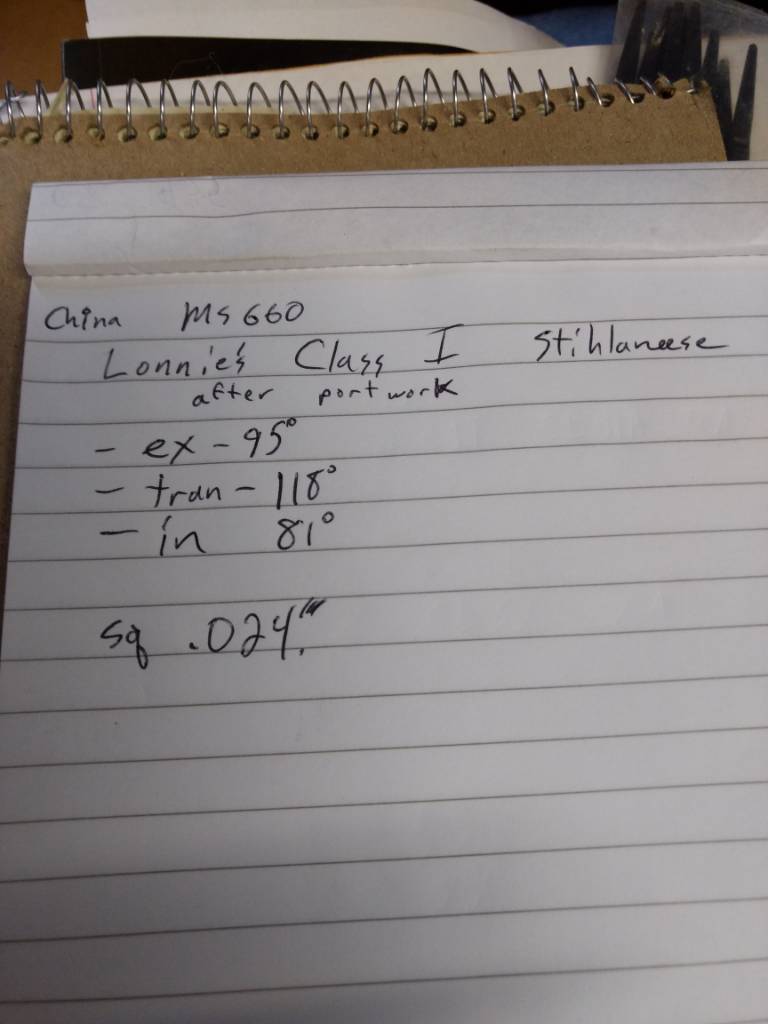 China MS660
Lonnie's Class I Stihlaneese
after port work
- ex - 95°
- tran - 118°
- in 81°
sq .024"